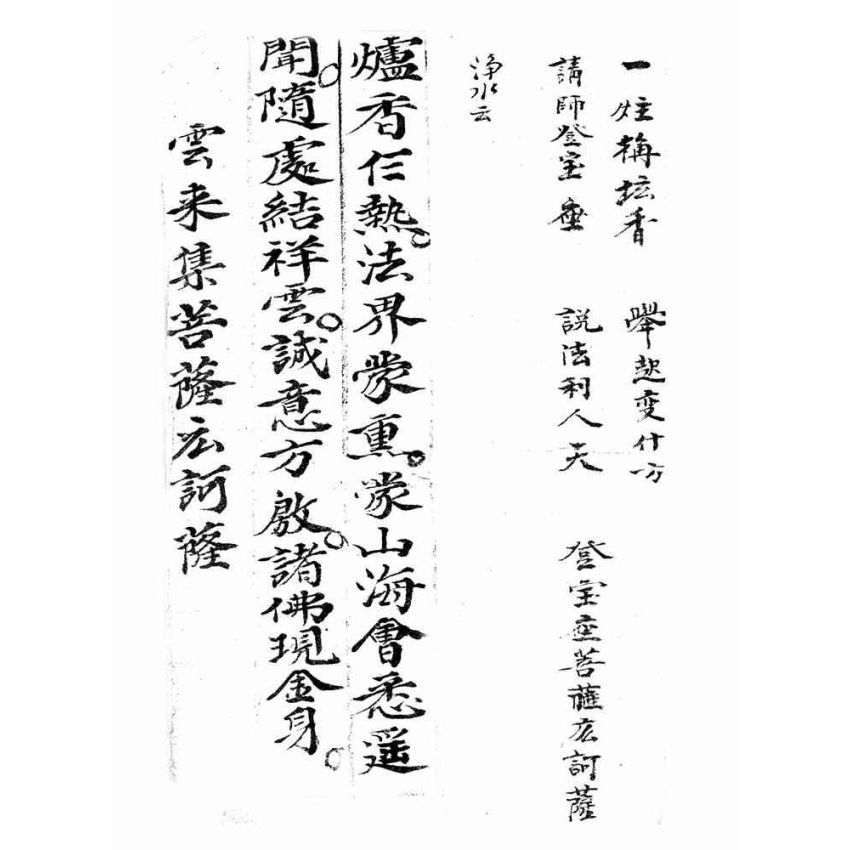 一炷稱坛香 舉起变什方
請師登宝座 説法利人天 登宝座菩薩広訶薩
浄水云
爐香仨熱。法界蒙熏。蒙山海會悉遥
聞。隨處結祥雲。誠意方啟。諸佛現金身。
雲来集菩薩広訶薩